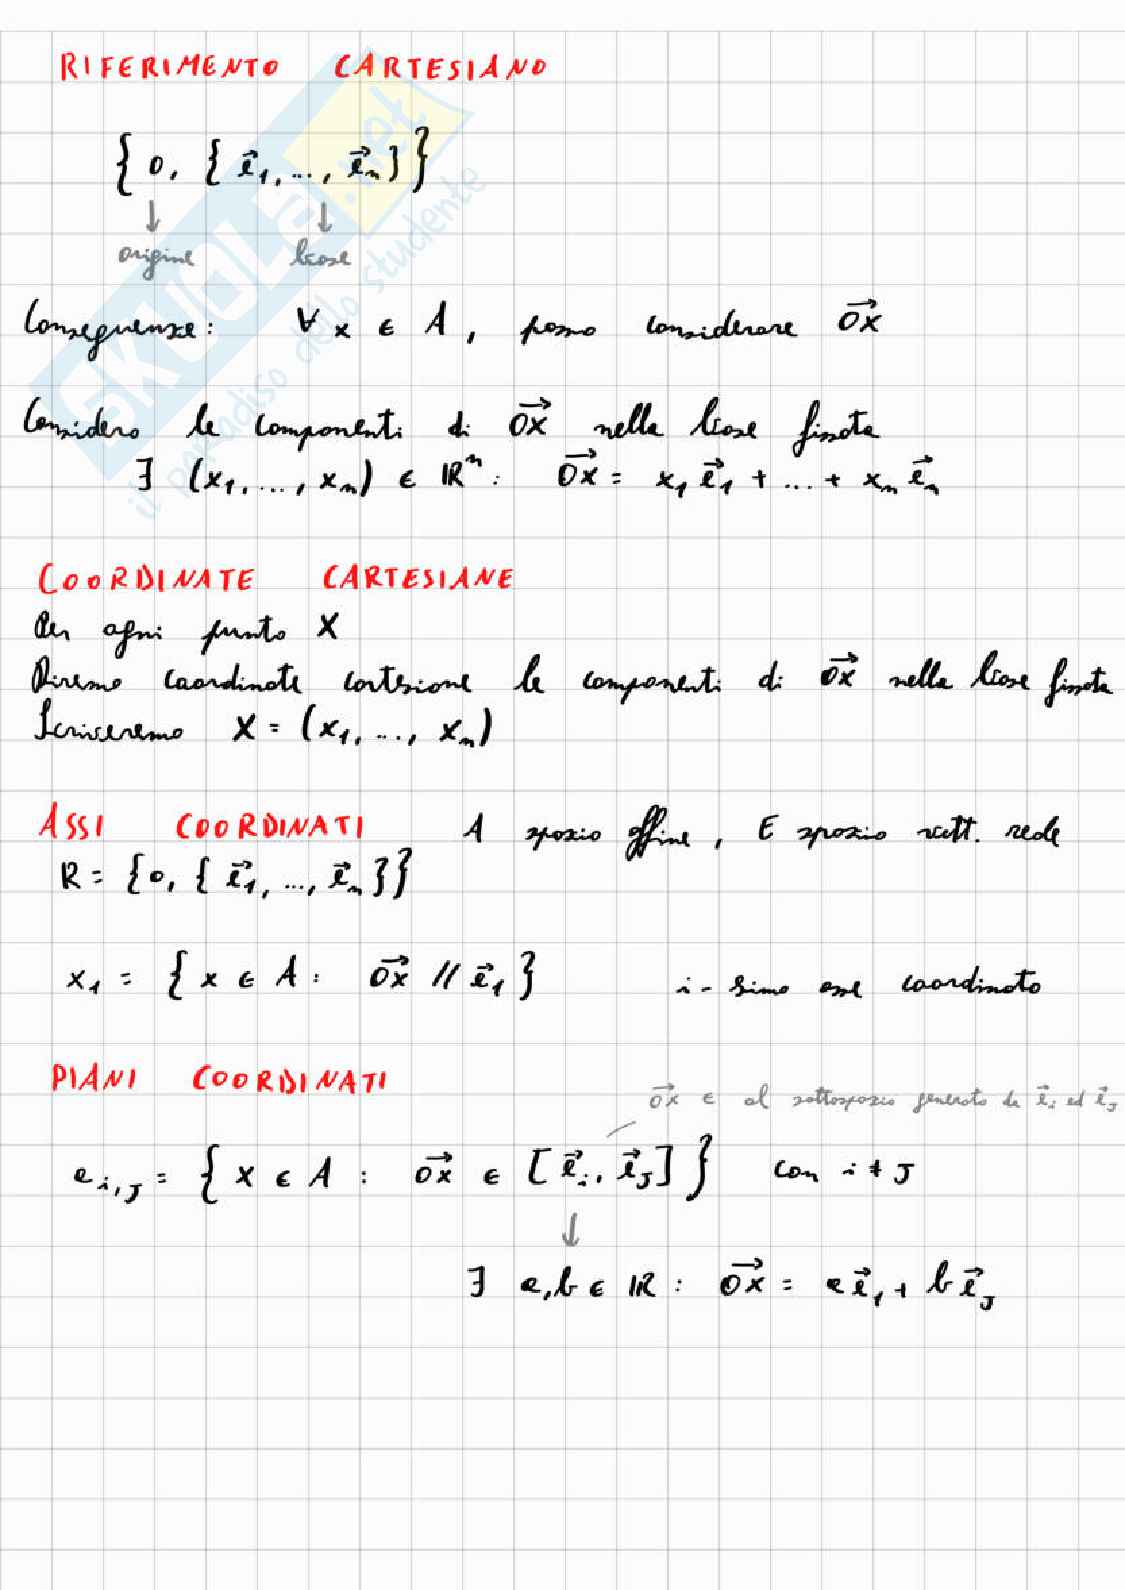 RIFERIMENTO CARTESIANO
{0, {e⃗₁, ..., e⃗ₙ}}
↓ ↓
origine base
Conseguenze: ∀ x ∈ A, posso considerare 0x⃗
Considero le componenti di 0x⃗ nella base fissata
∃ (x₁, ..., xₙ) ∈ ℝⁿ: 0x⃗ = x₁ e⃗₁ + ... + xₙ e⃗ₙ
COORDINATE CARTESIANE
Per ogni punto X
Diremo coordinate cartesiane le componenti di 0x⃗ nella base fissata
Scriveremo X = (x₁, ..., xₙ)
ASSI COORDINATI A spazio affine, E spazio vett. reale
R = {0, {e⃗₁, ..., e⃗ₙ}}
x₁ = {x ∈ A: 0x⃗ // e⃗₁} i-simo asse coordinato
PIANI COORDINATI
0x⃗ ∈ al sottospazio generato da e⃗ᵢ ed e⃗ⱼ
eᵢ,ⱼ = {x ∈ A : 0x⃗ ∈ [e⃗ᵢ, e⃗ⱼ]} con i ≠ J
↓
∃ a, b ∈ ℝ : 0x⃗ = a e⃗₁ + b e⃗ⱼ
SKUOLA.net
il paradiso dello studente